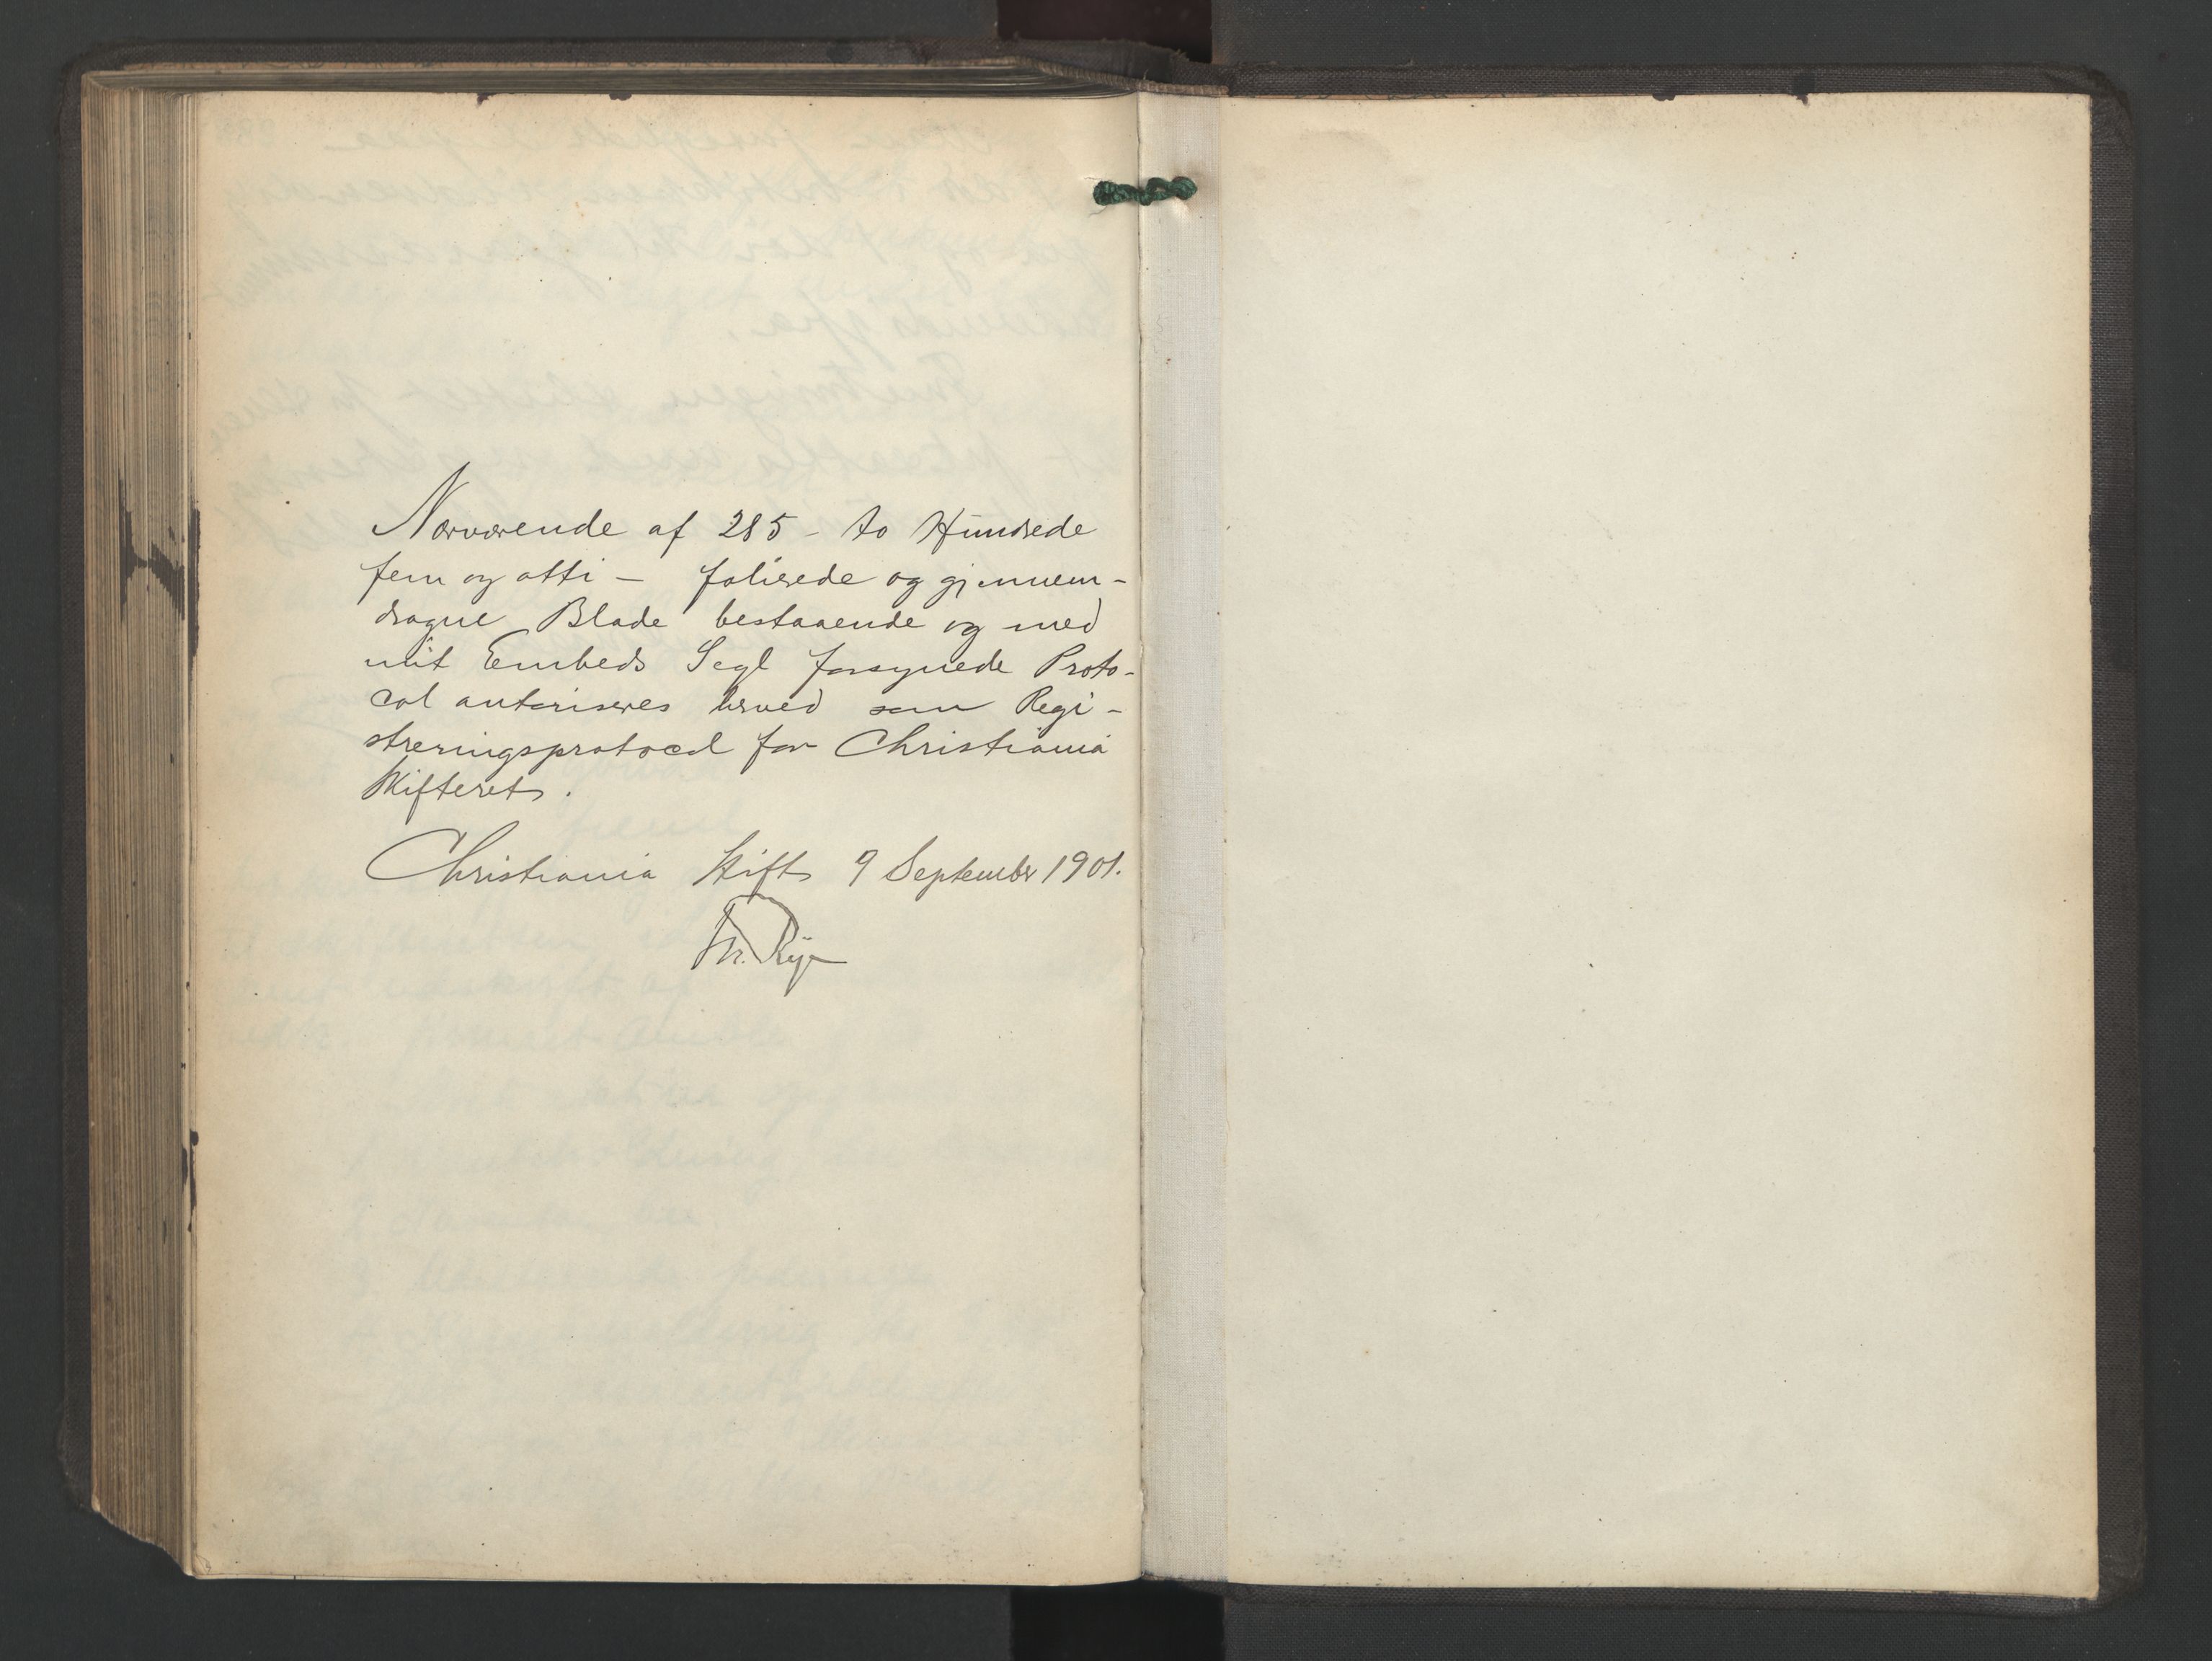 Nærværende af 285 - to Hundrede
fem og otti - folierede og gjennem-
dragne Blade bestaaende og med
mit Embeds Segl forsynede Proto-
col autoriseres herved som Regi-
streringsprotocol for Christiania
Skifteret.
Christiania Stift 9 September 1901.